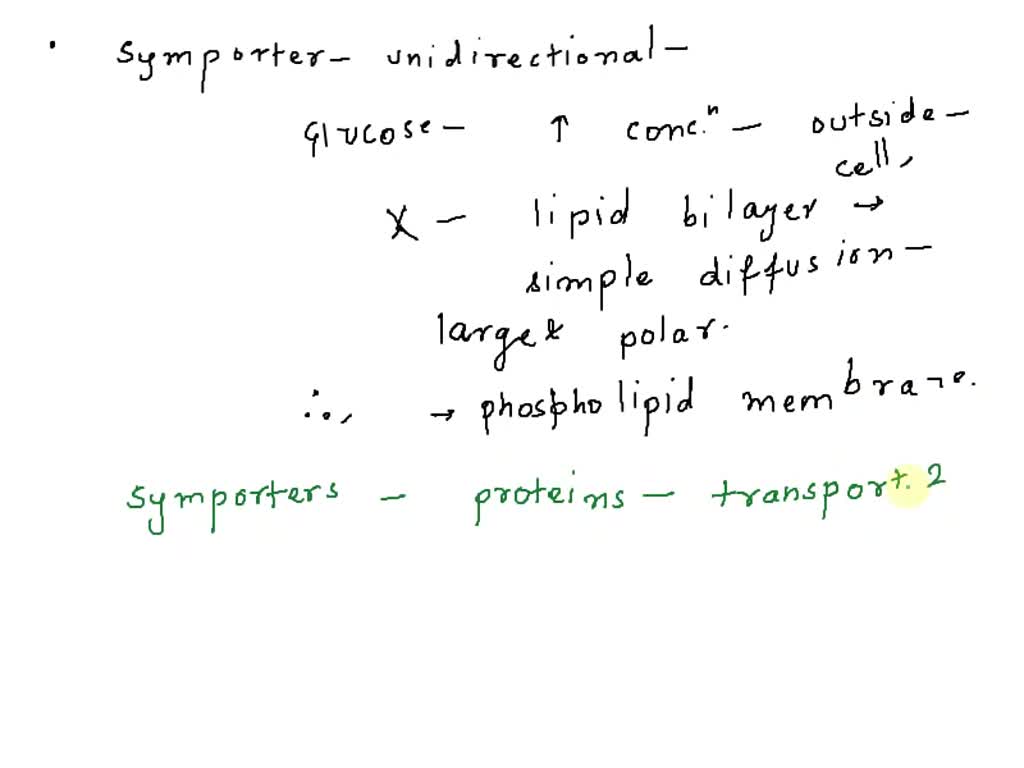 • Symporter - unidirectional -
Glucose - ↑ concⁿ. - outside -
cell,
X - lipid bilayer →
simple diffusion -
large & polar.
∴, → phospholipid membrane.
Symporters - proteins - transport. 2